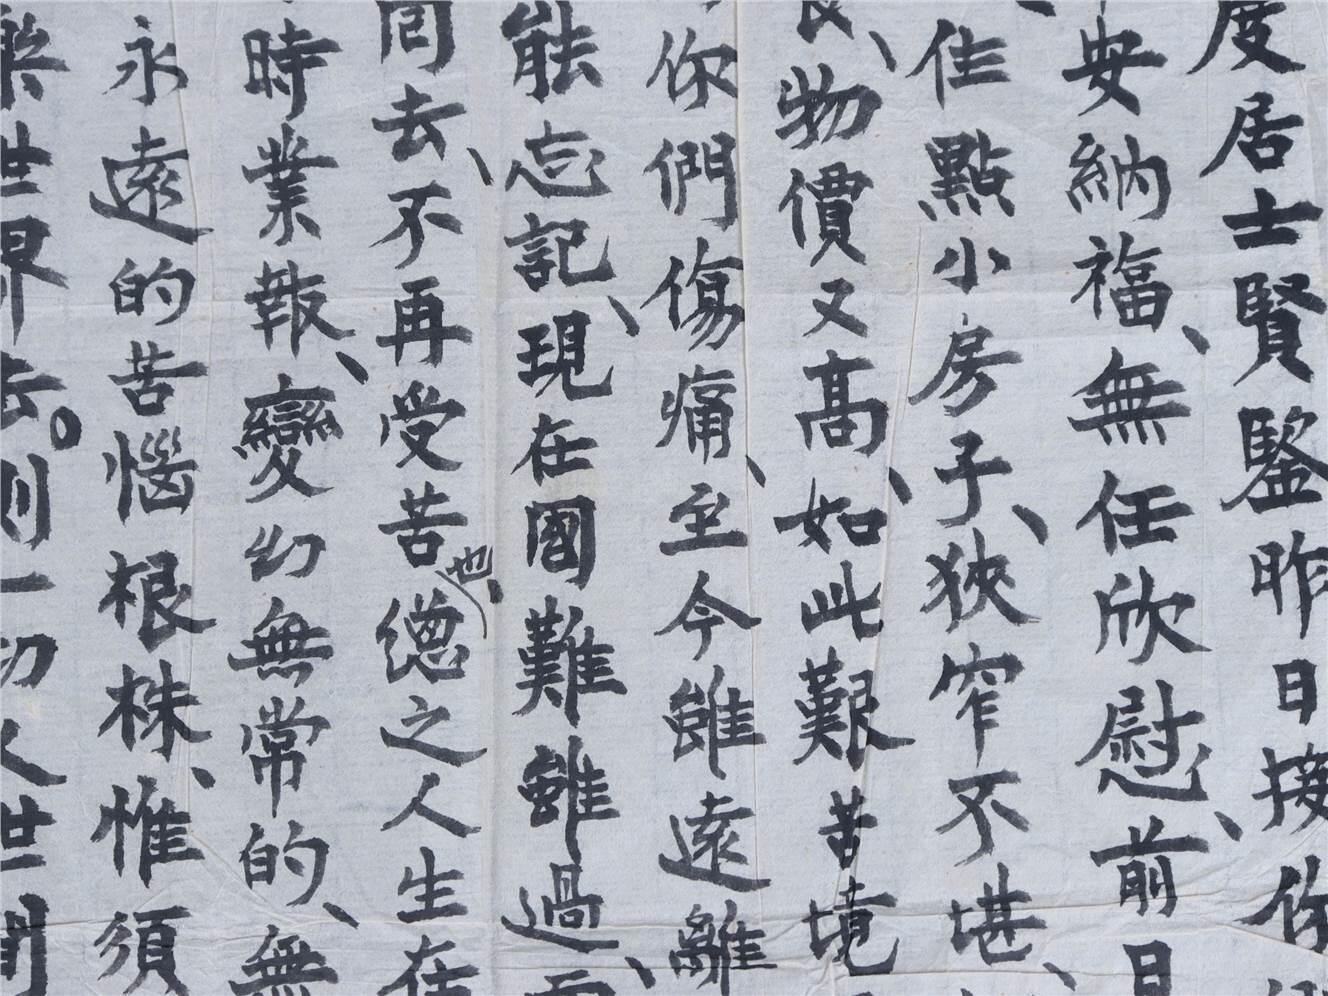 度居士賢鑒昨日接你
安納福、無任欣慰、前日
住點小房子、狹窄不堪、
良、物價又高、如此艱苦境
你們傷痛、至今雖遠離
能忘記、現在國難雖過、而
間去、不再受苦也、總之人生在
時業報、變幻無常的、無
永遠的苦惱根株、惟須
樂世界去。則一切人世間